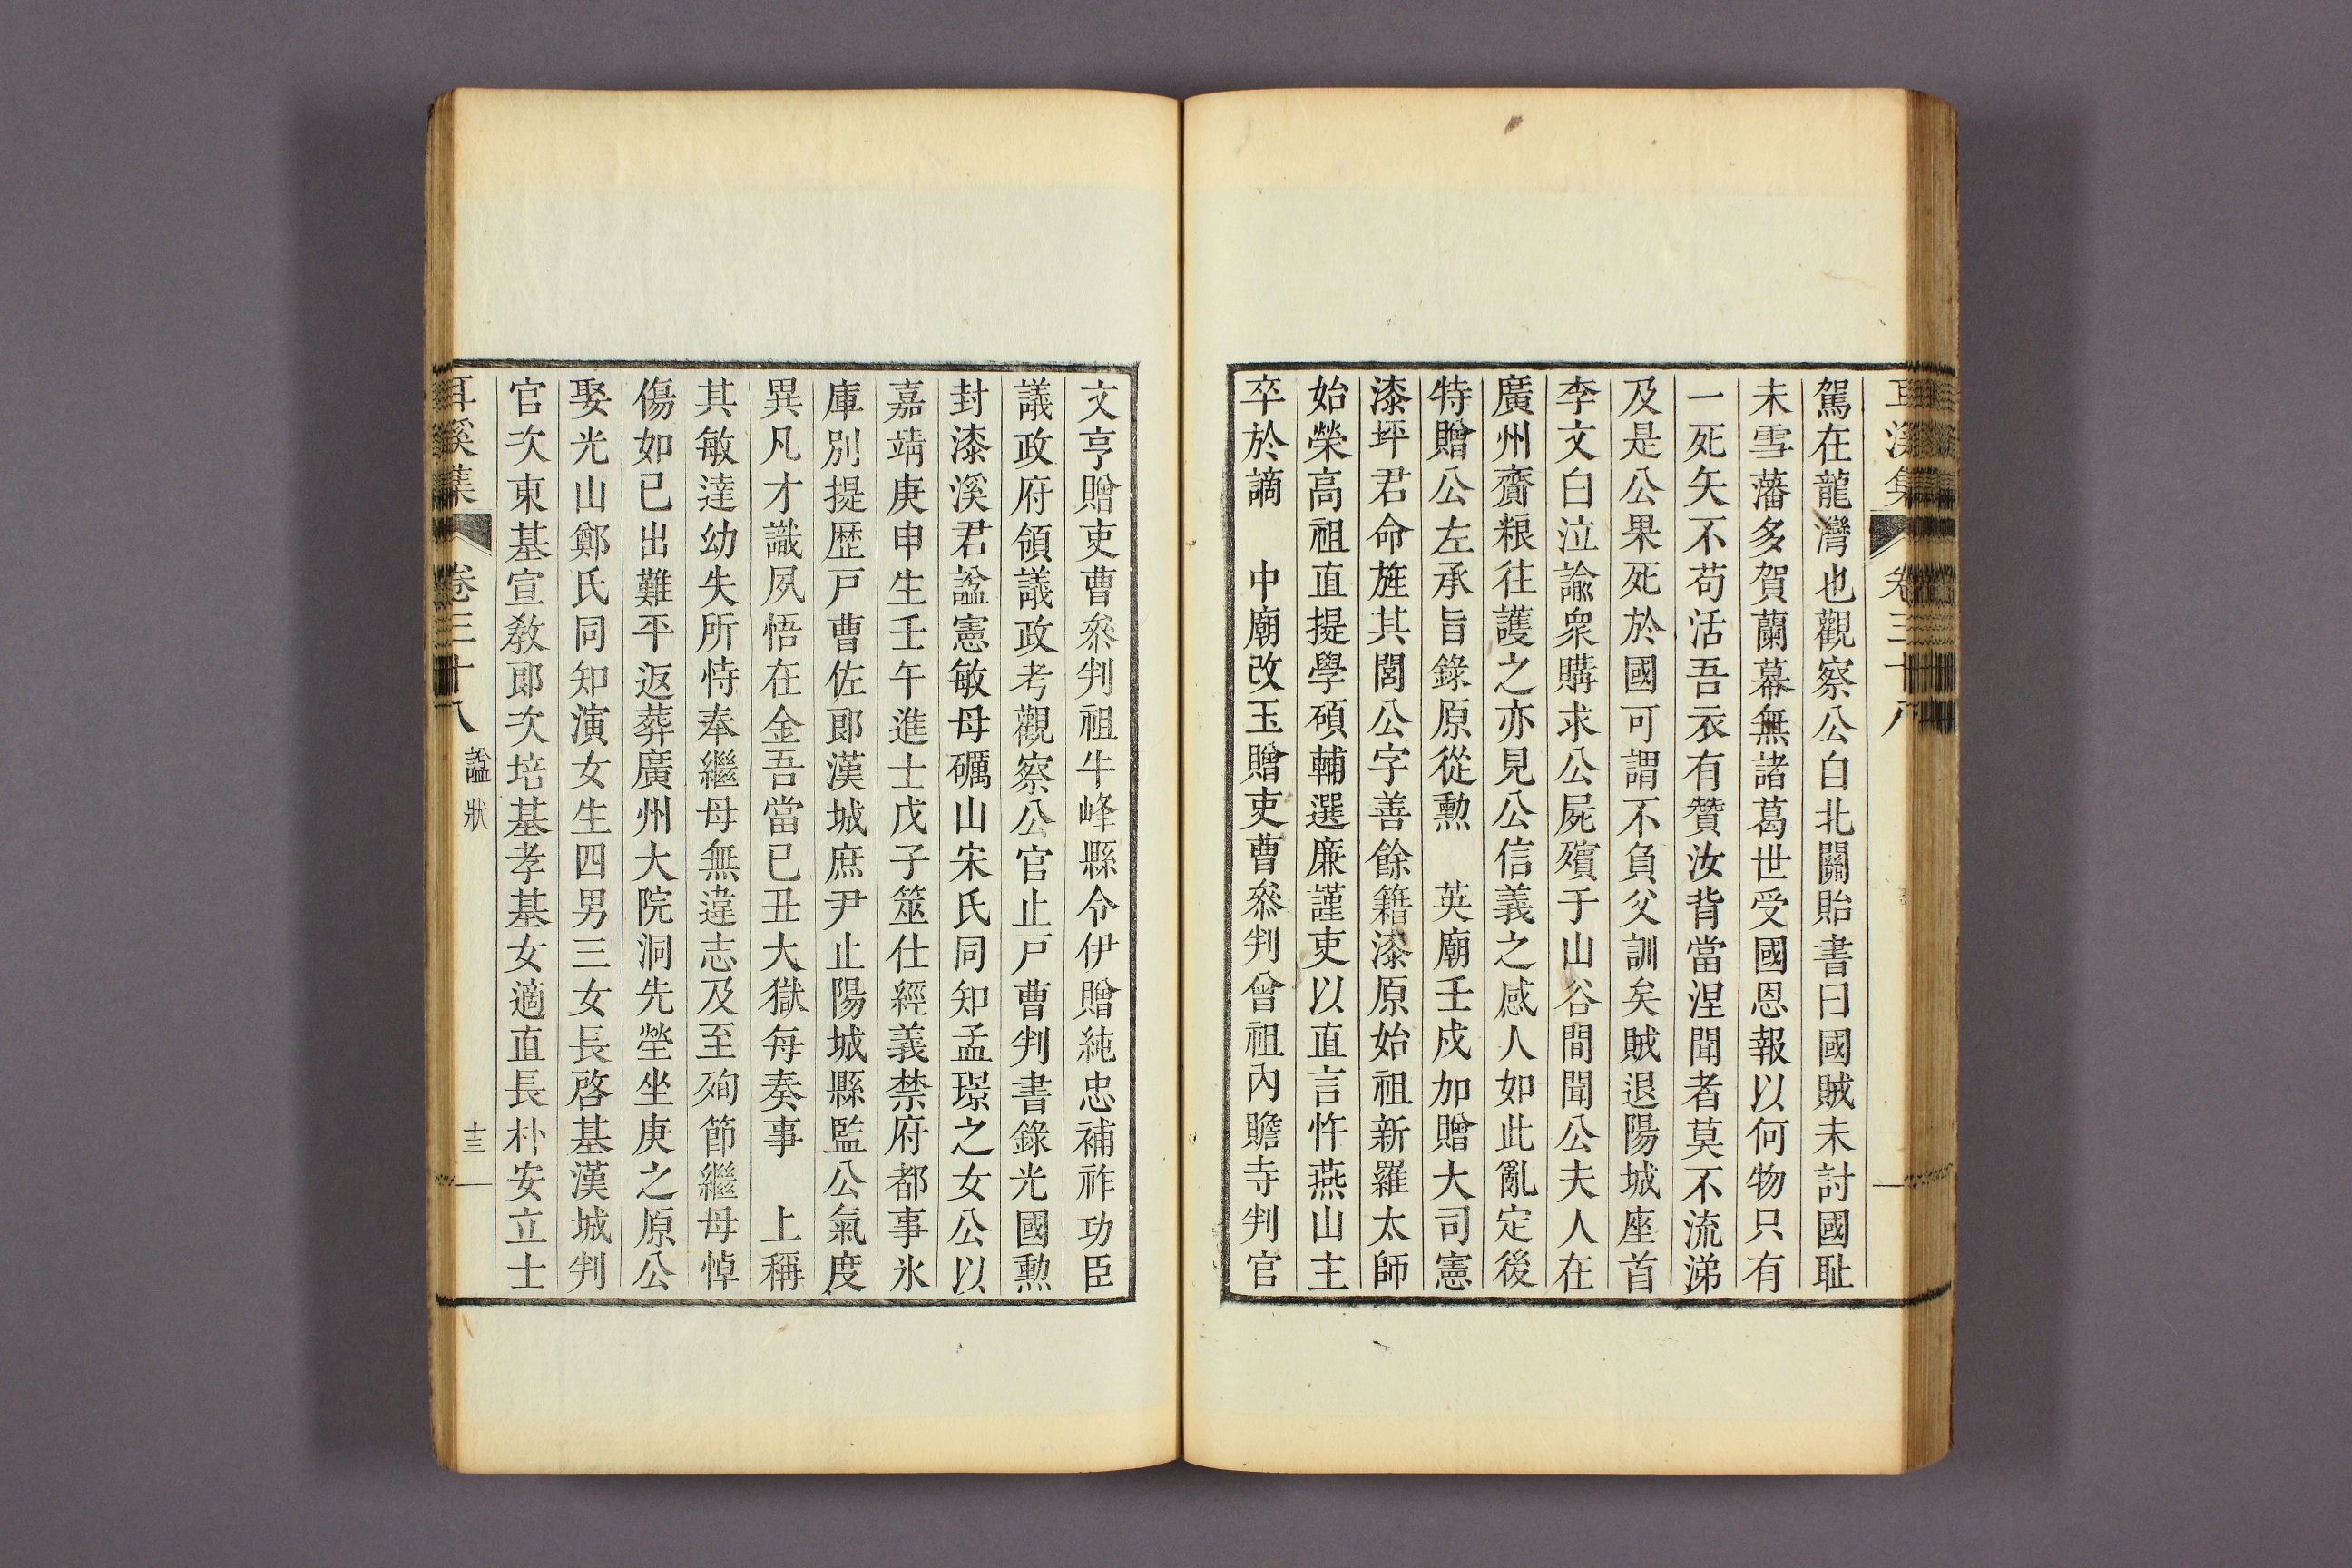 耳溪集 卷三十八
駕在龍灣也觀察公自北關貽書曰國賊未討國耻
未雪藩多賀蘭幕無諸葛世受國恩報以何物只有
一死矢不苟活吾衣有贊汝背當涅聞者莫不流涕
及是公果死於國可謂不負父訓矣賊退陽城座首
李文白泣諭衆購求公屍殯于山谷間聞公夫人在
廣州齎粮往護之亦見公信義之感人如此亂定後
特贈公左承旨錄原從勳 英廟壬戌加贈大司憲
漆坪君命旌其閭公字善餘籍漆原始祖新羅太師
始榮高祖直提學碩輔選廉謹吏以直言忤燕山主
卒於謫 中廟改玉贈吏曹叅判曾祖內贍寺判官
文亨贈吏曹叅判祖牛峰縣令伊贈純忠補祚功臣
議政府領議政考觀察公官止戸曹判書錄光國勳
封漆溪君諡憲敏母礪山宋氏同知孟璟之女公以
嘉靖庚申生壬午進士戊子筮仕經義禁府都事氷
庫別提歴戸曹佐郞漢城庶尹止陽城縣監公氣度
異凡才識夙悟在金吾當己丑大獄每奏事 上稱
其敏達幼失所恃奉繼母無違志及至殉節繼母悼
傷如已出難平返葬廣州大院洞先塋坐庚之原公
娶光山鄭氏同知演女生四男三女長啓基漢城判
官次東基宣敎郞次培基孝基女適直長朴安立士
耳溪集 卷三十八 諡狀 十三